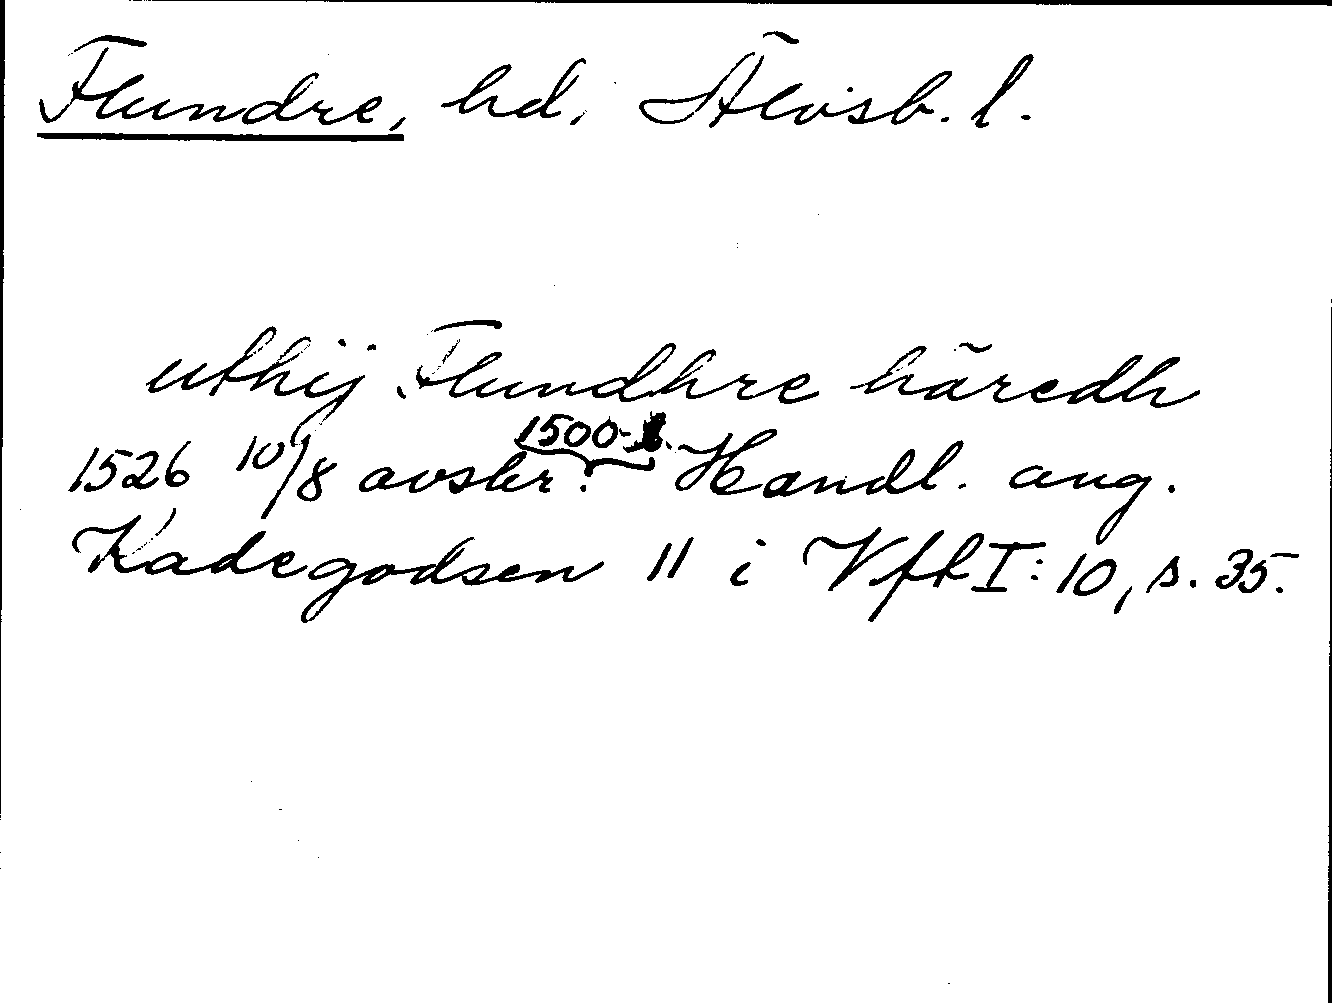 Flundre, hd, Älvsb. l.
uthij Flundhre häredh
1500-t.
1526 10/8 avskr. Handl. ang.
Kadegodsen 11 i VftI:10, s. 35.